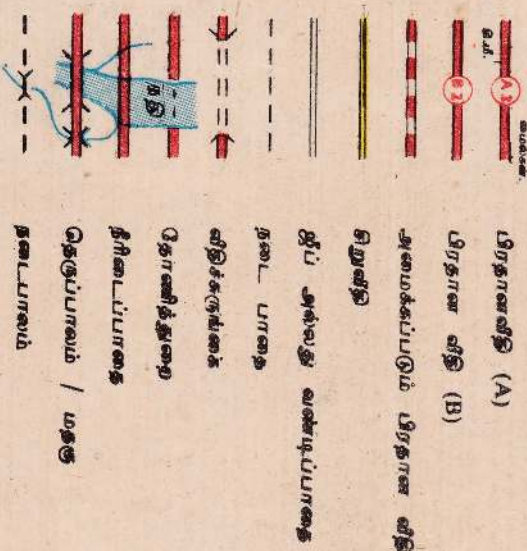 மைல்கள்.
உ.மீ.
A 2
பிரதானவீதி (A)
B 2
பிரதான வீதி (B)
அமைக்கப்படும் பிரதான வீதி
சிறுவீதி
ஜீப் அல்லது வண்டிப்பாதை
நடை பாதை
வீதிச்சுருங்கை
நதி
தோணித்துறை
நீரிடைப்பாதை
தெருப்பாலம் / மதகு
நடைபாலம்